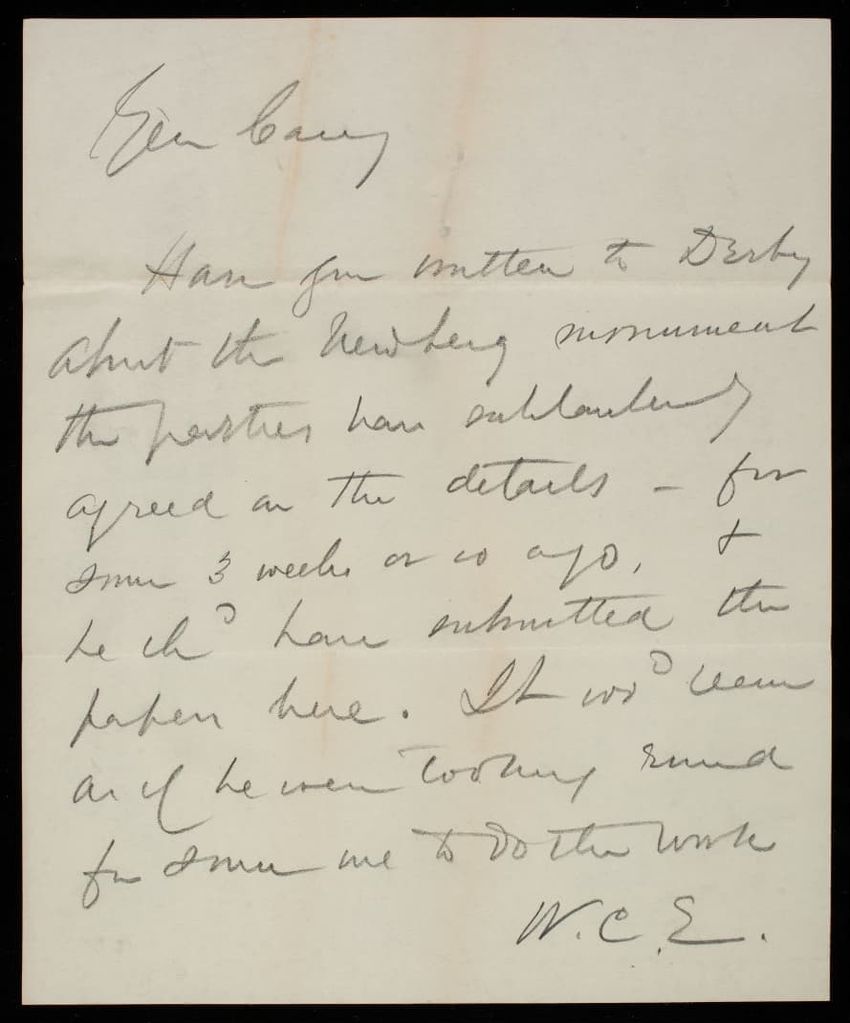 Gen Casey
Have you written to Derby
about the Newberg monument
the parties have substantially
agreed on the details - for
some 3 weeks or so ago, &
he shd have submitted the
papers here. It wod seem
as if he were looking round
for some one to do the work
W.C.E.